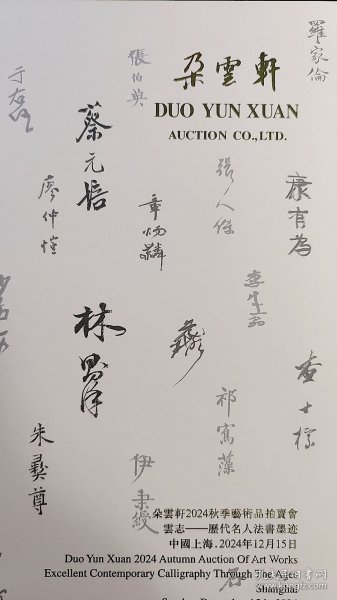 羅家倫
張伯英
于右任
朵雲軒
DUO YUN XUAN
AUCTION CO.,LTD.
蔡元培
張人傑
廖仲愷
章炳麟
康有為
林則徐
祁寯藻
查士標
朱彝尊
伊秉綬
朵雲軒2024秋季藝術品拍賣會
雲志——歷代名人法書墨迹
中國上海.2024年12月15日
Duo Yun Xuan 2024 Autumn Auction Of Art Works
Excellent Contemporary Calligraphy Through The Ages
Shanghai